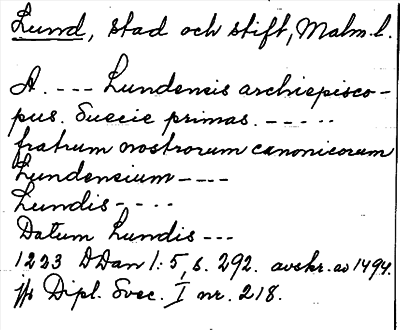 Lund, stad och stift, Malm. l.
A. --- Lundensis archiepisco-
pus. Suecie primas. -----
fratrum nostrorum canonicorum
Lundensium ----
Lundis- ---
Datum Lundis ---
1223 DDan 1:5, s. 292. avskr. av 1494.
jfr Dipl. Svec. I nr. 218.